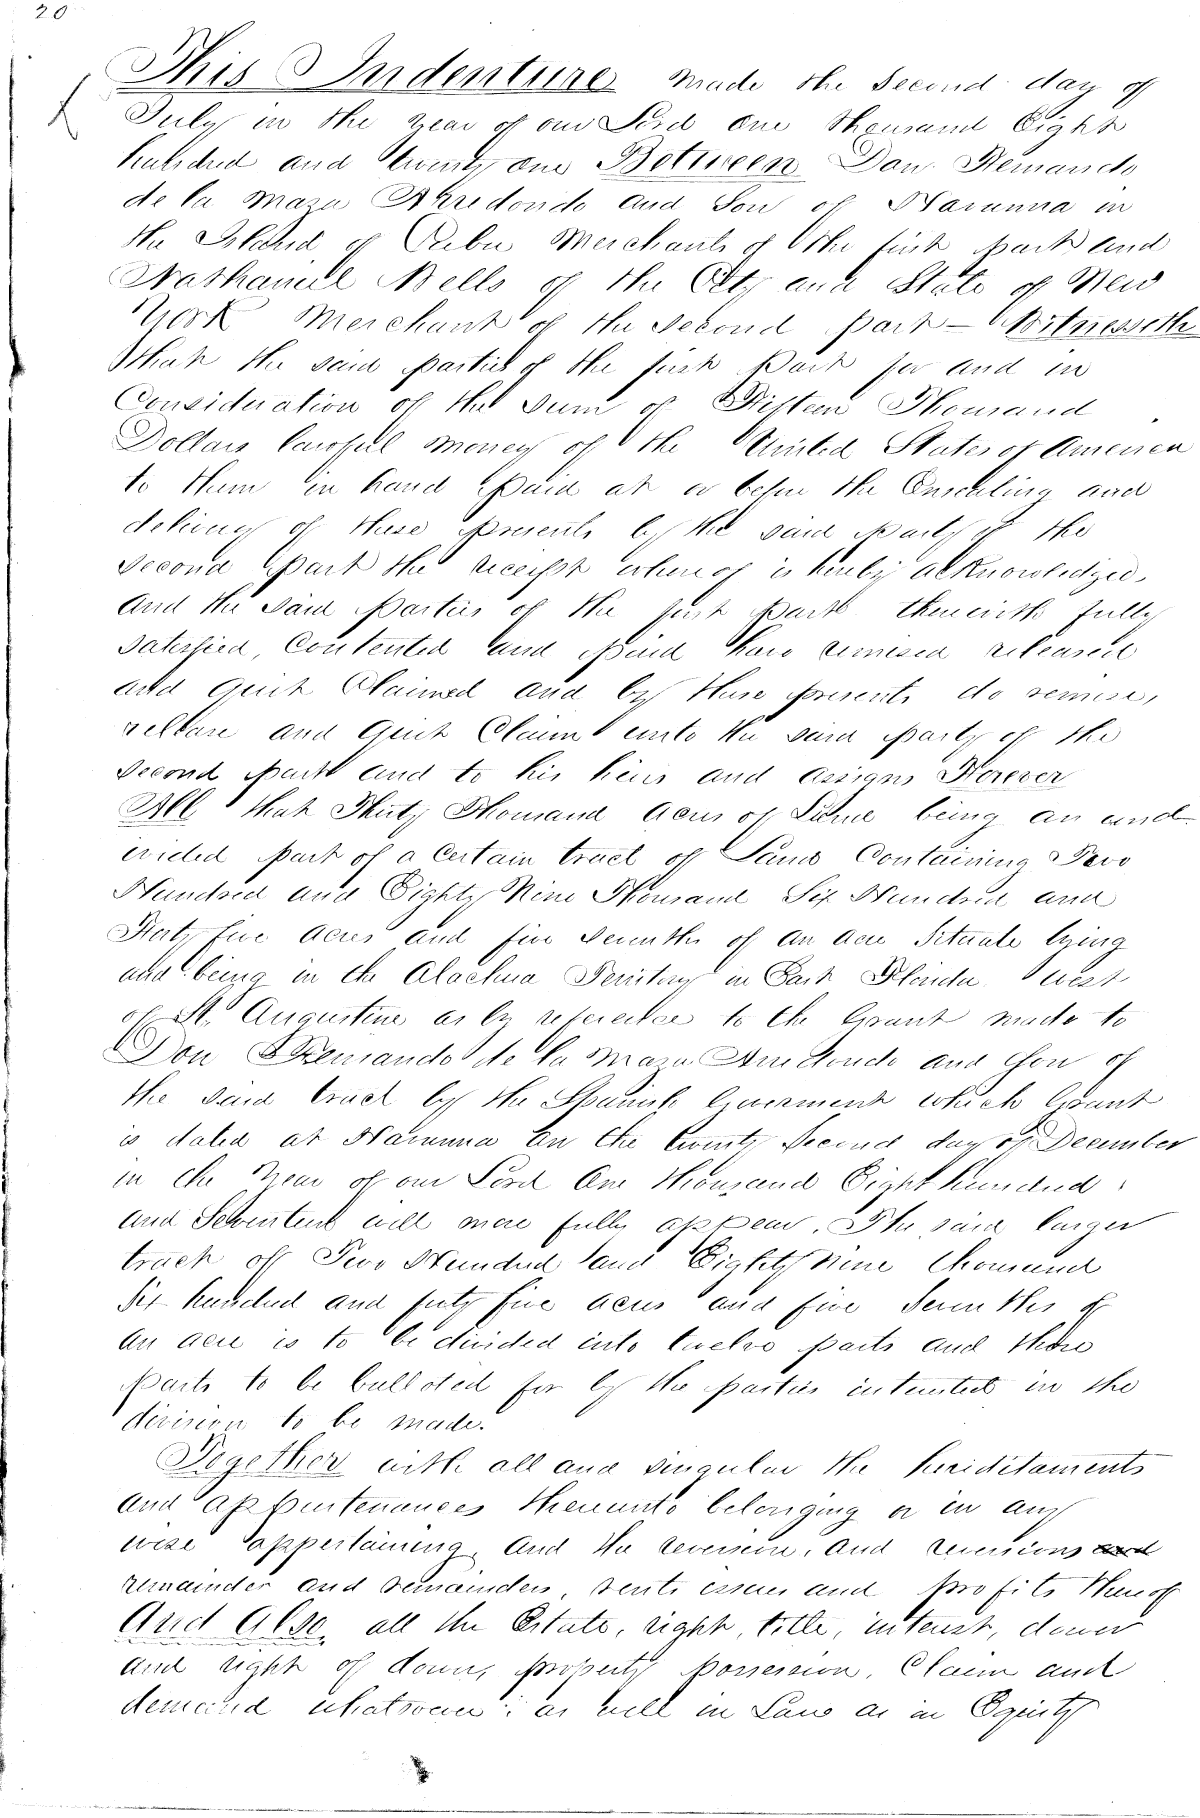 20
This Indenture made the Second day of
July in the year of our Lord One thousand Eight
hundred and twenty one Between Don Fernando
de la Maza Arredondo and Son of Havanna in
the Island of Cuba Merchants of the first part and
Nathaniel Mells of the City and State of New
York Merchant of the Second part — Witnesseth
That the said parties of the first part for and in
Consideration of the Sum of Fifteen Thousand
Dollars lawful money of the United States of America
to them in hand Paid at or before the Ensealing and
delivery of these presents by the said party of the
Second part the receipt whereof is hereby acknowledged,
and the said parties of the first part therewith fully
Satisfied, Contented and paid have remised released
and Quit Claimed and by these presents do remise,
release and Quit Claim unto the said party of the
Second part and to his heirs and assigns Forever
All that Thirty Thousand acres of Land being an und-
ivided part of a Certain tract of Land Containing Two
Hundred and Eighty Nine Thousand Six Hundred and
Forty five acres and five Sevenths of an acre Situate lying
and being in the Alachua Territory in East Florida West
of St. Augustine as by reference to the Grant made to
Don Fernando de la Maza Arredondo and Son of
the said tract by the Spanish Goverment which Grant
is dated at Havanna on the twenty Second day of December
in the Year of our Lord One thousand Eight hundred
and Seventeen will more fully appear. The said larger
tract of Two Hundred and Eighty Nine thousand
Six hundred and forty five acres and five Sevenths of
an acre is to be divided into twelve parts and those
parts to be balloted for by the parties interested in the
division to be made.
Together with all and singular the heriditaments
and appurtenances thereunto belonging or in any
wise appertaining, and the reversion, and reversions and
remainder and remainders, rents issues and profits thereof
And Also, all the Estate, right, title, interest, dower
and right of dower, property possession, Claim and
demand whatsoever; as well in Law as in Equity